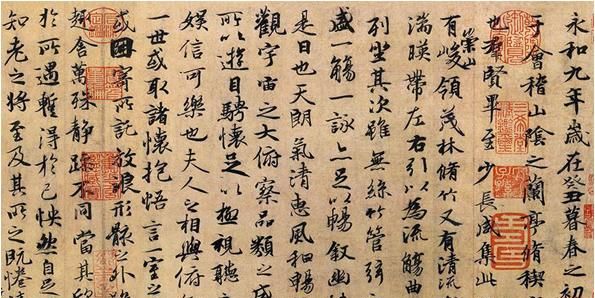 永和九年歲在癸丑暮春之初
于會稽山陰之蘭亭脩稧
也羣賢畢至少長咸集此
有崇山峻領茂林脩竹又有清流
湍暎帶左右引以為流觴曲
列坐其次雖無絲竹管弦
盛一觴一詠亦足以暢叙幽
是日也天朗氣清惠風和暢
觀宇宙之大俯察品類之盛
所以遊目騁懷足以極視聽
娛信可樂也夫人之相與俯
一世或取諸懷抱悟言一室之
或因寄所託放浪形骸之外
趣舍萬殊靜躁不同當其欣
於所遇蹔得於己怏然自足
知老之將至及其所之既惓